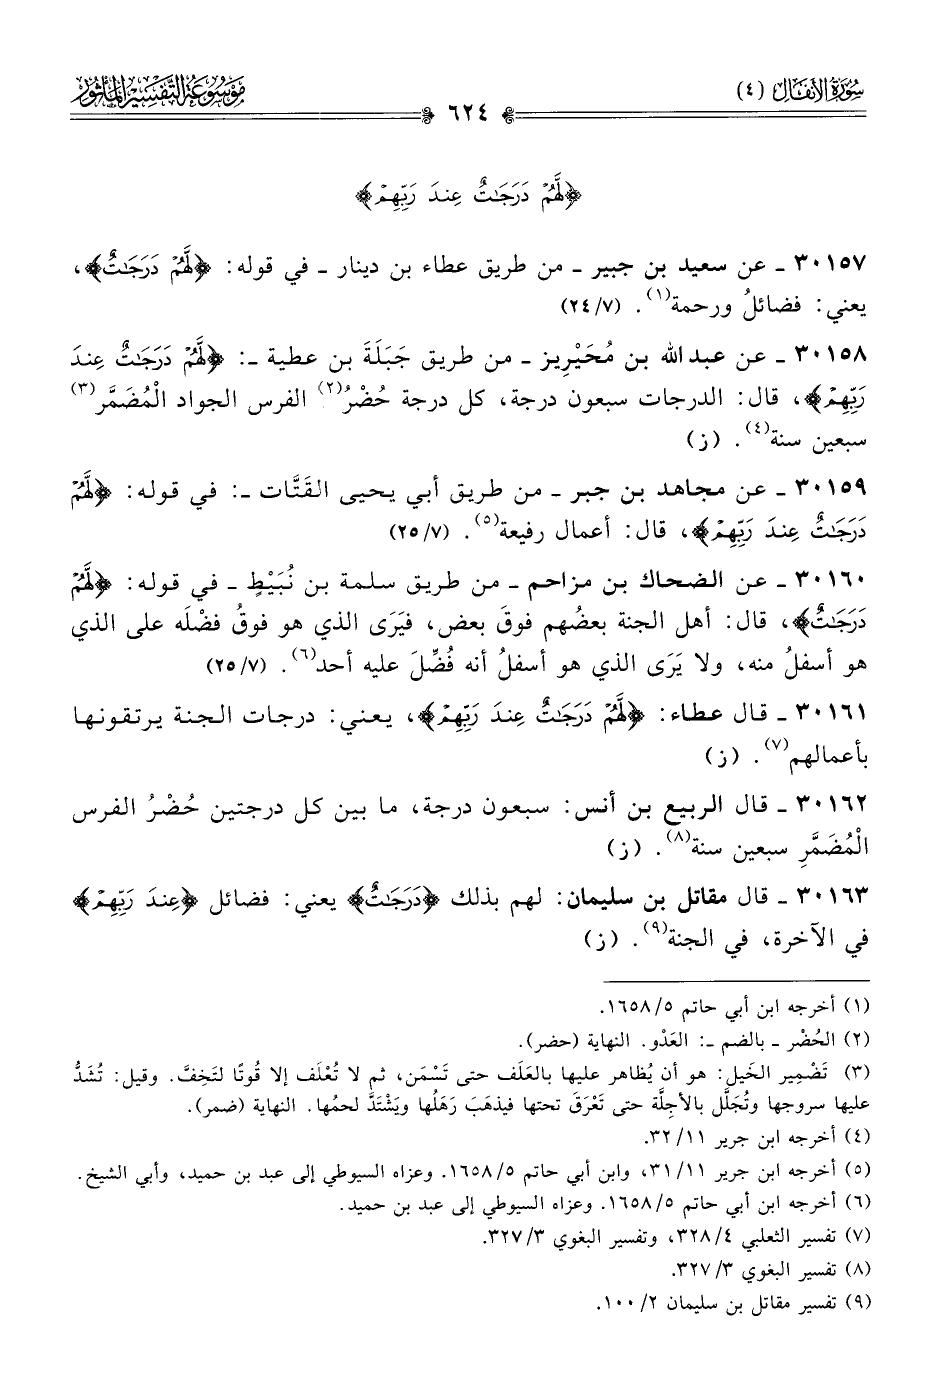 سُورَةُ الأَنفَال (٤)
مَوْسُوعَة التَّفْسِير المَأْثُور
٦٢٤
﴿لَّهُمْ دَرَجَٰتٌ عِندَ رَبِّهِمْ﴾
٣٠١٥٧ ـ عن سعيد بن جبير ـ من طريق عطاء بن دينار ـ في قوله: ﴿لَّهُمْ دَرَجَٰتٌ﴾،
يعني: فضائلُ ورحمة(١). (٧/ ٢٤)
٣٠١٥٨ ـ عن عبد الله بن مُحَيْرِيز ـ من طريق جَبَلَةَ بن عطية ـ: ﴿لَّهُمْ دَرَجَٰتٌ عِندَ
رَبِّهِمْ﴾، قال: الدرجات سبعون درجة، كل درجة حُضْرُ(٢) الفرس الجواد الْمُضَمَّر(٣)
سبعين سنة(٤). (ز)
٣٠١٥٩ ـ عن مجاهد بن جبر ـ من طريق أبي يحيى القَتَّات ـ: في قوله: ﴿لَّهُمْ
دَرَجَٰتٌ عِندَ رَبِّهِمْ﴾، قال: أعمال رفيعة(٥). (٧/ ٢٥)
٣٠١٦٠ ـ عن الضحاك بن مزاحم ـ من طريق سلمة بن نُبَيْطٍ ـ في قوله: ﴿لَّهُمْ
دَرَجَٰتٌ﴾، قال: أهل الجنة بعضُهم فوقَ بعض، فيَرَى الذي هو فوقُ فضْلَه على الذي
هو أسفلُ منه، ولا يَرَى الذي هو أسفلُ أنه فُضِّلَ عليه أحد(٦). (٧/ ٢٥)
٣٠١٦١ ـ قال عطاء: ﴿لَّهُمْ دَرَجَٰتٌ عِندَ رَبِّهِمْ﴾، يعني: درجات الجنة يرتقونها
بأعمالهم(٧). (ز)
٣٠١٦٢ ـ قال الربيع بن أنس: سبعون درجة، ما بين كل درجتين حُضْرُ الفرس
الْمُضَمَّرِ سبعين سنة(٨). (ز)
٣٠١٦٣ ـ قال مقاتل بن سليمان: لهم بذلك ﴿دَرَجَٰتٌ﴾ يعني: فضائل ﴿عِندَ رَبِّهِمْ﴾
في الآخرة، في الجنة(٩). (ز)
(١) أخرجه ابن أبي حاتم ٥/ ١٦٥٨.
(٢) الحُضْر ـ بالضم ـ: العَدْو. النهاية (حضر).
(٣) تَضْمِير الخَيل: هو أن يُظاهر عليها بالعَلَف حتى تَسْمَن، ثم لا تُعْلَف إلا قُوتًا لتَخِفَّ. وقيل: تُشَدُّ
عليها سروجها وتُجَلَّل بالأجِلَّة حتى تَعْرَقَ تحتها فيذهَبَ رَهَلُها ويَشْتَدَّ لحمُها. النهاية (ضمر).
(٤) أخرجه ابن جرير ١١/ ٣٢.
(٥) أخرجه ابن جرير ١١/ ٣١، وابن أبي حاتم ٥/ ١٦٥٨. وعزاه السيوطي إلى عبد بن حميد، وأبي الشيخ.
(٦) أخرجه ابن أبي حاتم ٥/ ١٦٥٨. وعزاه السيوطي إلى عبد بن حميد.
(٧) تفسير الثعلبي ٤/ ٣٢٨، وتفسير البغوي ٣/ ٣٢٧.
(٨) تفسير البغوي ٣/ ٣٢٧.
(٩) تفسير مقاتل بن سليمان ٢/ ١٠٠.